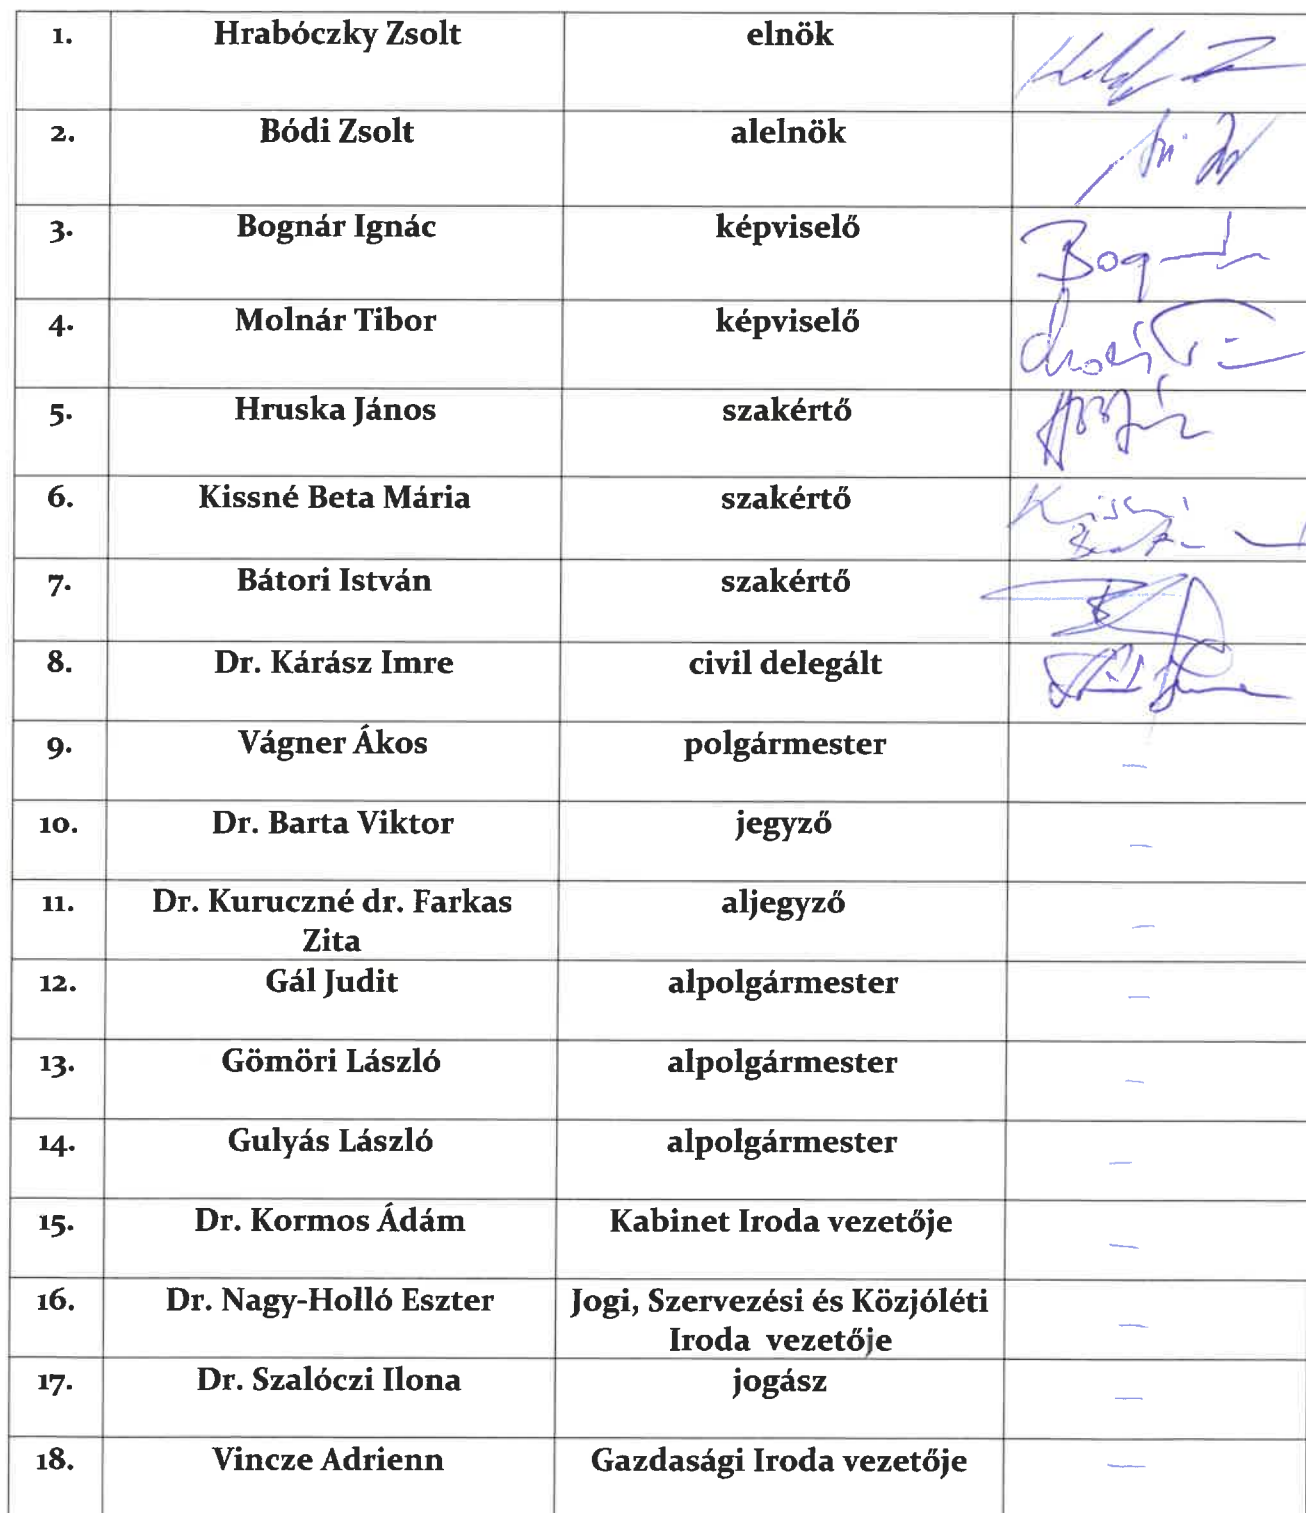 1. Hrabóczky Zsolt elnök
2. Bódi Zsolt alelnök
3. Bognár Ignác képviselő
4. Molnár Tibor képviselő
5. Hruska János szakértő
6. Kissné Beta Mária szakértő
7. Bátori István szakértő
8. Dr. Kárász Imre civil delegált
9. Vágner Ákos polgármester –
10. Dr. Barta Viktor jegyző –
11. Dr. Kuruczné dr. Farkas aljegyző –
Zita
12. Gál Judit alpolgármester –
13. Gömöri László alpolgármester –
14. Gulyás László alpolgármester –
15. Dr. Kormos Ádám Kabinet Iroda vezetője –
16. Dr. Nagy-Holló Eszter Jogi, Szervezési és Közjóléti –
Iroda vezetője
17. Dr. Szalóczi Ilona jogász –
18. Vincze Adrienn Gazdasági Iroda vezetője –